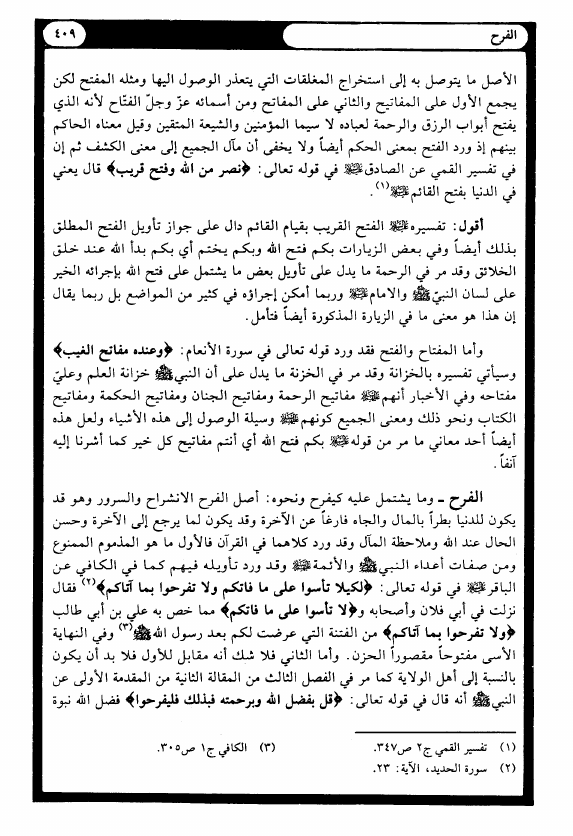 الفرح
٤٠٩
الأصل ما يتوصل به إلى استخراج المغلقات التي يتعذر الوصول اليها ومثله المفتح لكن
يجمع الأول على المفاتيح والثاني على المفاتح ومن أسمائه عزّ وجلّ الفتّاح لأنه الذي
يفتح أبواب الرزق والرحمة لعباده لا سيما المؤمنين والشيعة المتقين وقيل معناه الحاكم
بينهم إذ ورد الفتح بمعنى الحكم أيضاً ولا يخفى أن مآل الجميع إلى معنى الكشف ثم إن
في تفسير القمي عن الصادق عليه السلام في قوله تعالى: ﴿نصر من الله وفتح قريب﴾ قال يعني
في الدنيا بفتح القائم عليه السلام(١).
أقول: تفسيره عليه السلام الفتح القريب بقيام القائم دال على جواز تأويل الفتح المطلق
بذلك أيضاً وفي بعض الزيارات بكم فتح الله وبكم يختم أي بكم بدأ الله عند خلق
الخلائق وقد مر في الرحمة ما يدل على تأويل بعض ما يشتمل على فتح الله بإجرائه الخير
على لسان النبيّ ﷺ والامام عليه السلام وربما أمكن إجراؤه في كثير من المواضع بل ربما يقال
إن هذا هو معنى ما في الزيارة المذكورة أيضاً فتأمل.
وأما المفتاح والفتح فقد ورد قوله تعالى في سورة الأنعام: ﴿وعنده مفاتح الغيب﴾
وسيأتي تفسيره بالخزانة وقد مر في الخزنة ما يدل على أن النبي ﷺ خزانة العلم وعليّ
مفتاحه وفي الأخبار أنهم عليهم السلام مفاتيح الرحمة ومفاتيح الجنان ومفاتيح الحكمة ومفاتيح
الكتاب ونحو ذلك ومعنى الجميع كونهم عليهم السلام وسيلة الوصول إلى هذه الأشياء ولعل هذه
أيضاً أحد معاني ما مر من قوله عليه السلام بكم فتح الله أي أنتم مفاتيح كل خير كما أشرنا إليه
آنفاً.
الفرح ـ وما يشتمل عليه كيفرح ونحوه: أصل الفرح الانشراح والسرور وهو قد
يكون للدنيا بطراً بالمال والجاه فارغاً عن الآخرة وقد يكون لما يرجع إلى الآخرة وحسن
الحال عند الله وملاحظة المآل وقد ورد كلاهما في القرآن فالأول ما هو المذموم الممنوع
ومن صفات أعداء النبي ﷺ والأئمة عليهم السلام وقد ورد تأويله فيهم كما في الكافي عن
الباقر عليه السلام في قوله تعالى: ﴿لكيلا تأسوا على ما فاتكم ولا تفرحوا بما آتاكم﴾(٢) فقال
نزلت في أبي فلان وأصحابه و﴿لا تأسوا على ما فاتكم﴾ مما خص به علي بن أبي طالب
﴿ولا تفرحوا بما آتاكم﴾ من الفتنة التي عرضت لكم بعد رسول الله ﷺ(٣) وفي النهاية
الأسى مفتوحاً مقصوراً الحزن. وأما الثاني فلا شك أنه مقابل للأول فلا بد أن يكون
بالنسبة إلى أهل الولاية كما مر في الفصل الثالث من المقالة الثانية من المقدمة الأولى عن
النبي ﷺ أنه قال في قوله تعالى: ﴿قل بفضل الله وبرحمته فبذلك فليفرحوا﴾ فضل الله نبوة
(١) تفسير القمي ج٢ ص٣٤٧.
(٢) سورة الحديد، الآية: ٢٣.
(٣) الكافي ج١ ص٣٠٥.